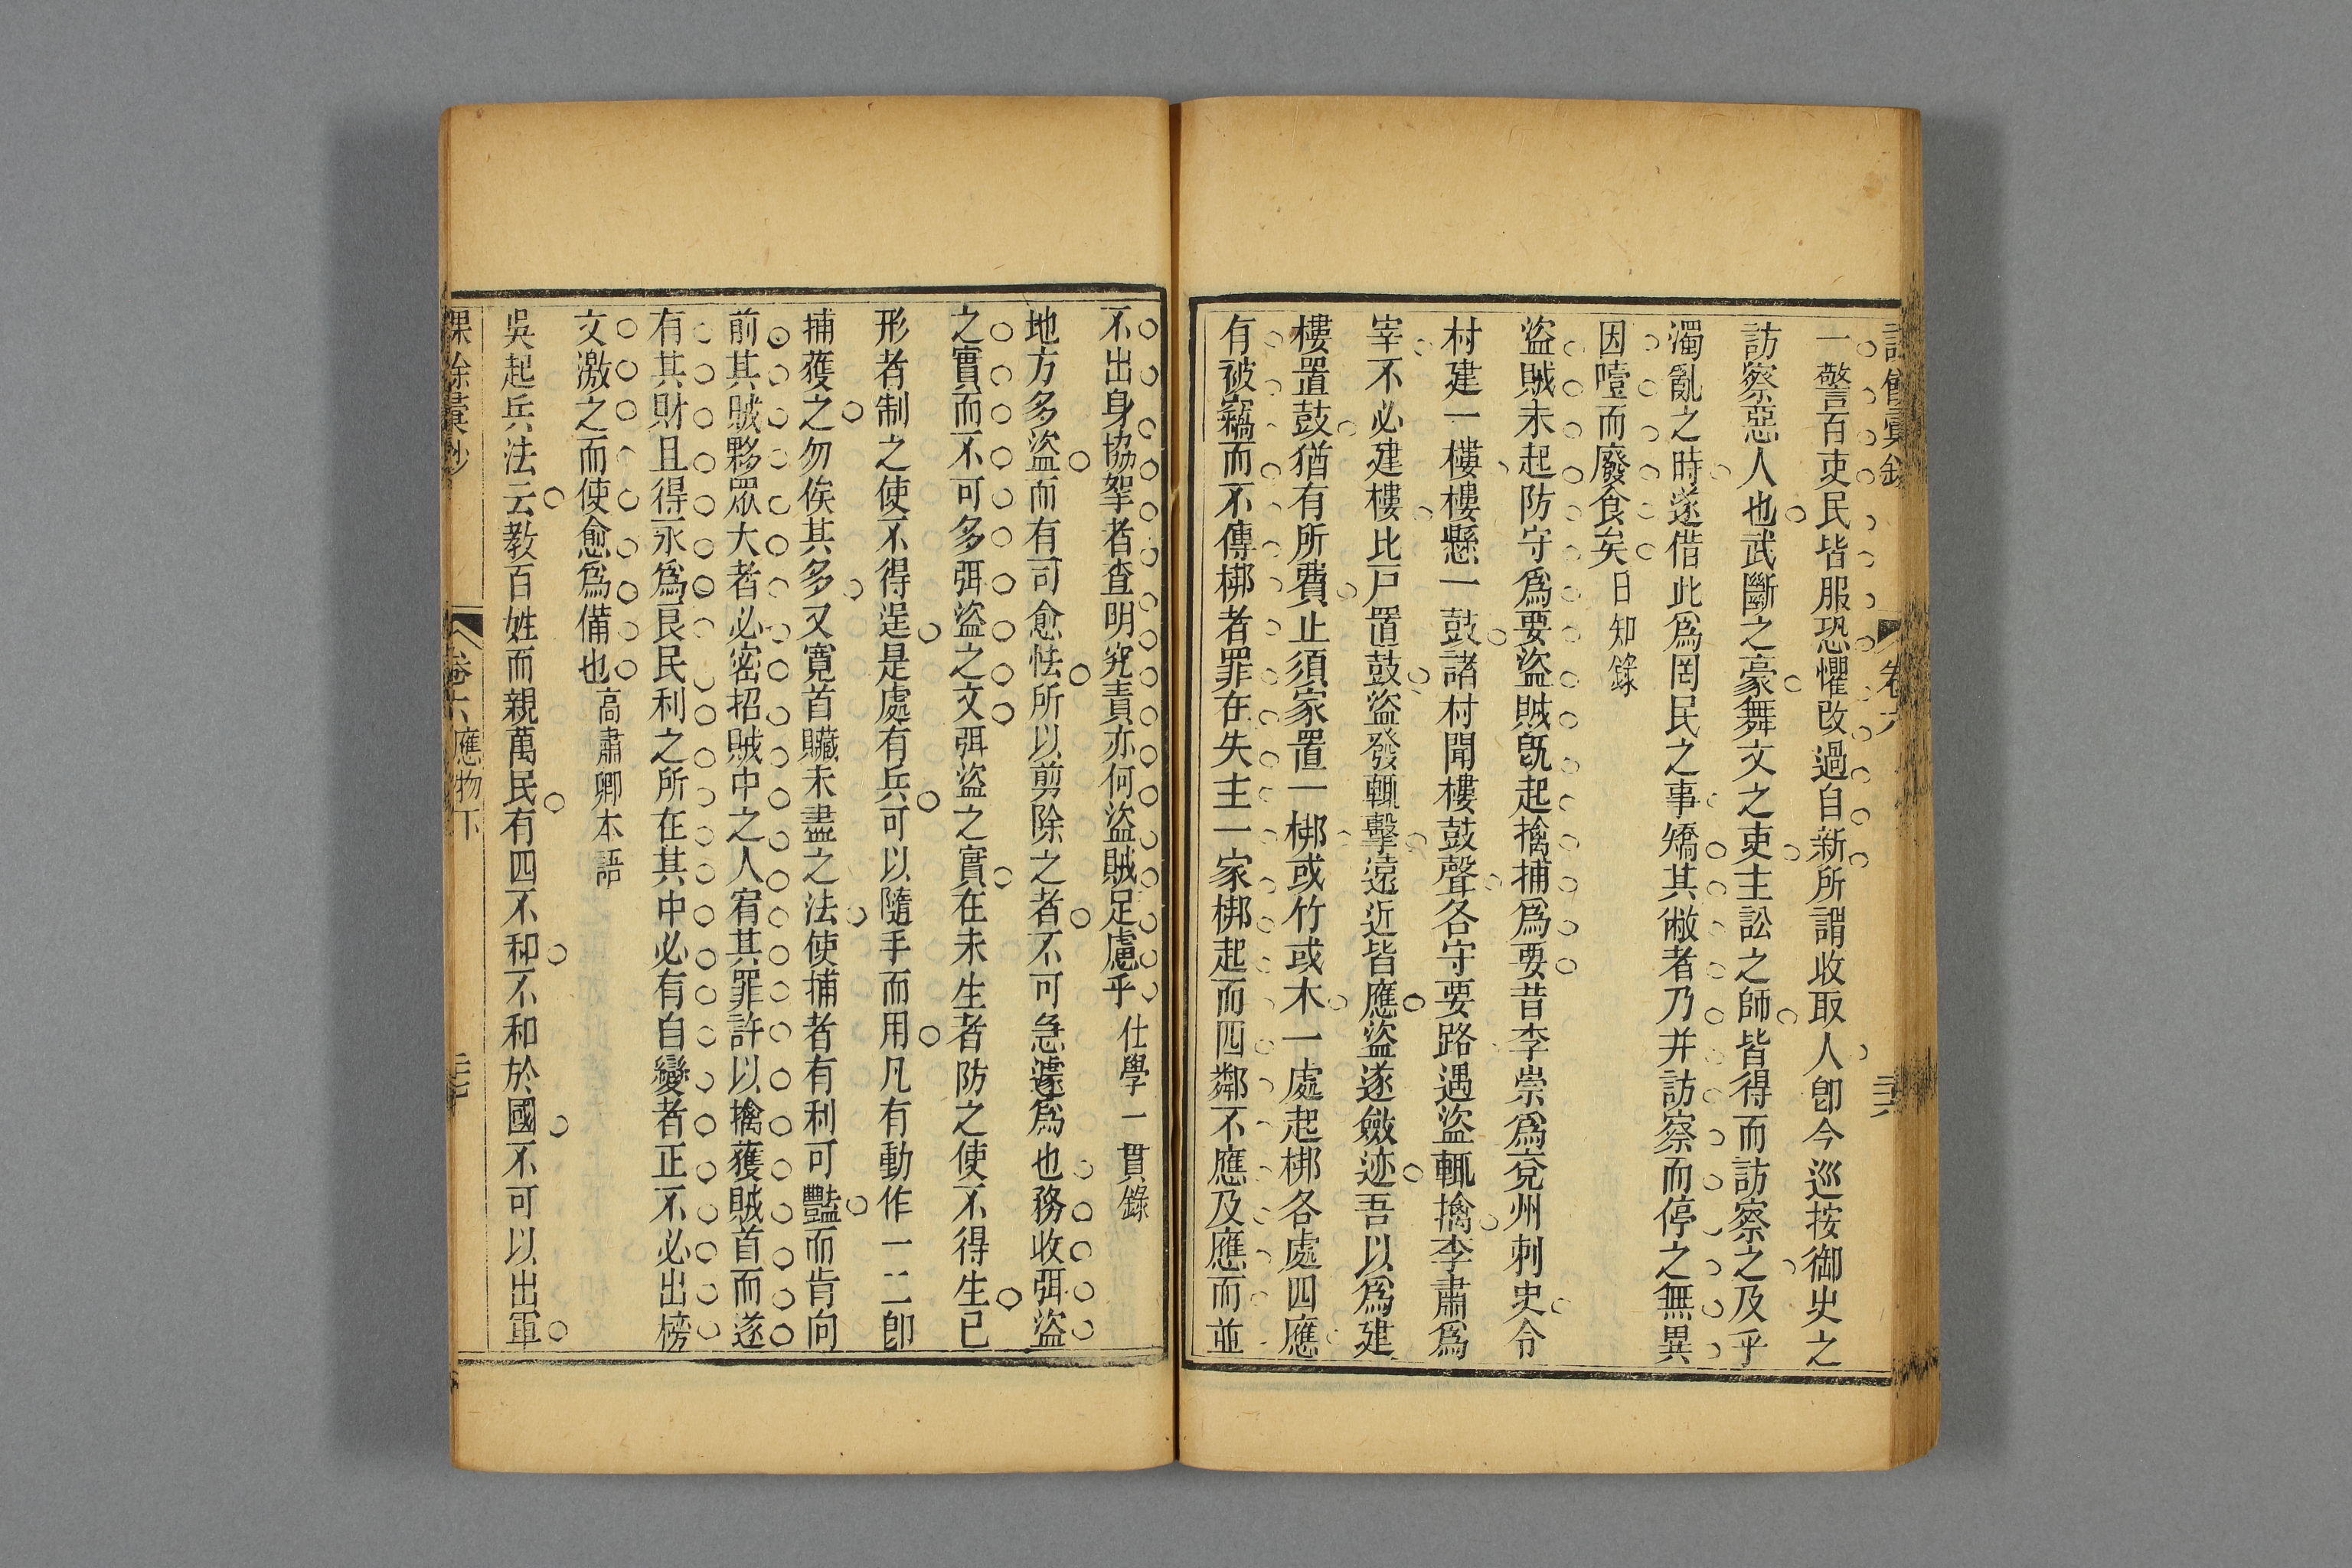 課餘彙鈔 卷六 二六
一警百吏民皆服恐懼改過自新所謂收取人卽今巡按御史之
訪察惡人也武斷之豪舞文之吏主訟之師皆得而訪察之及乎
濁亂之時遂借此爲罔民之事矯其敝者乃并訪察而停之無異
因噎而廢食矣日知錄
盜賊未起防守爲要盜賊旣起擒捕爲要昔李崇爲兗州刺史令
村建一樓樓懸一鼓諸村聞樓鼓聲各守要路遇盜輒擒李肅爲
宰不必建樓比戸置鼓盜發輒擊遠近皆應盜遂斂迹吾以爲建
樓置鼓猶有所費止須家置一梆或竹或木一處起梆各處四應
有被竊而不傳梆者罪在失主一家梆起而四鄰不應及應而並
不出身協拏者查明究責亦何盜賊足慮乎仕學一貫錄
地方多盜而有司愈怯所以剪除之者不可急遽爲也務收弭盜
之實而不可多弭盜之文弭盜之實在未生者防之使不得生已
形者制之使不得逞是處有兵可以隨手而用凡有動作一二卽
捕獲之勿俟其多又寬首贜未盡之法使捕者有利可豔而肯向
前其賊夥眾大者必密招賊中之人宥其罪許以擒獲賊首而遂
有其財且得永爲良民利之所在其中必有自變者正不必出榜
文激之而使愈爲備也高肅卿本語
吳起兵法云教百姓而親萬民有四不和不和於國不可以出軍
課餘彙鈔 卷六應物下 二七